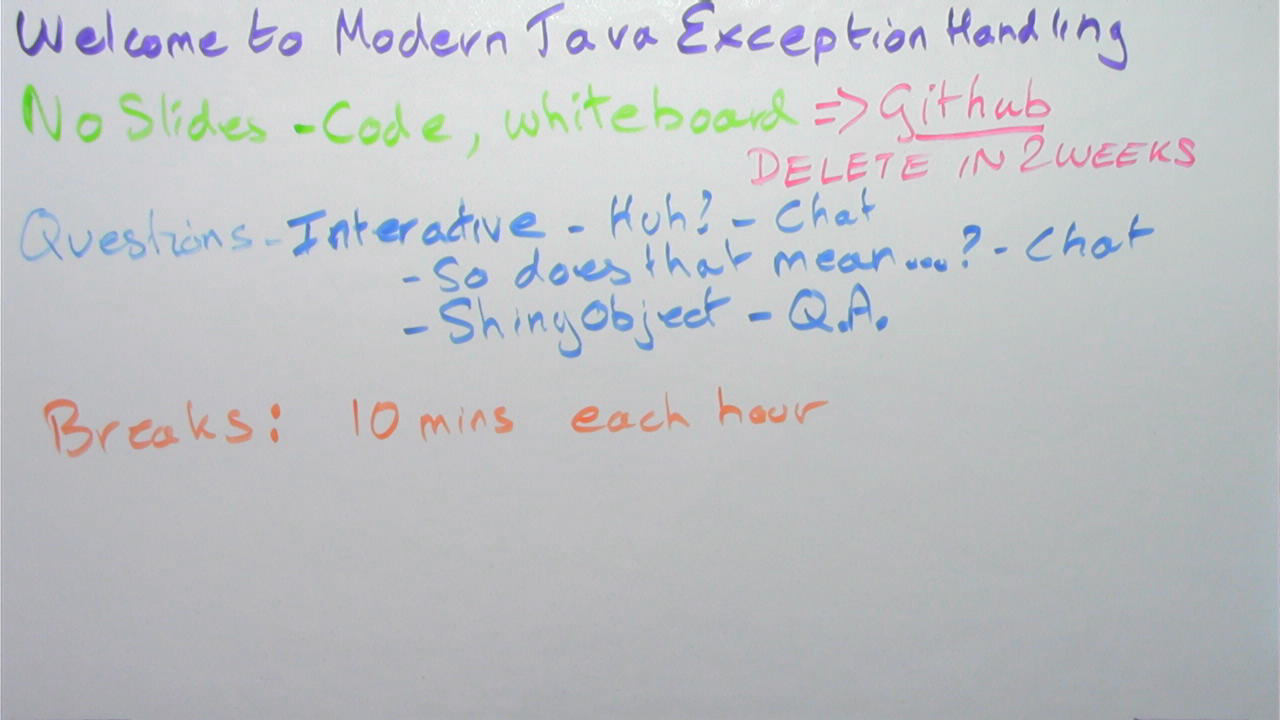 Welcome to Modern Java Exception Handling
No Slides - Code, whiteboard => Github
DELETE IN 2 WEEKS
Questions - Interactive - Huh? - Chat
- So does that mean...? - Chat
- ShinyObject - Q.A.
Breaks: 10 mins each hour